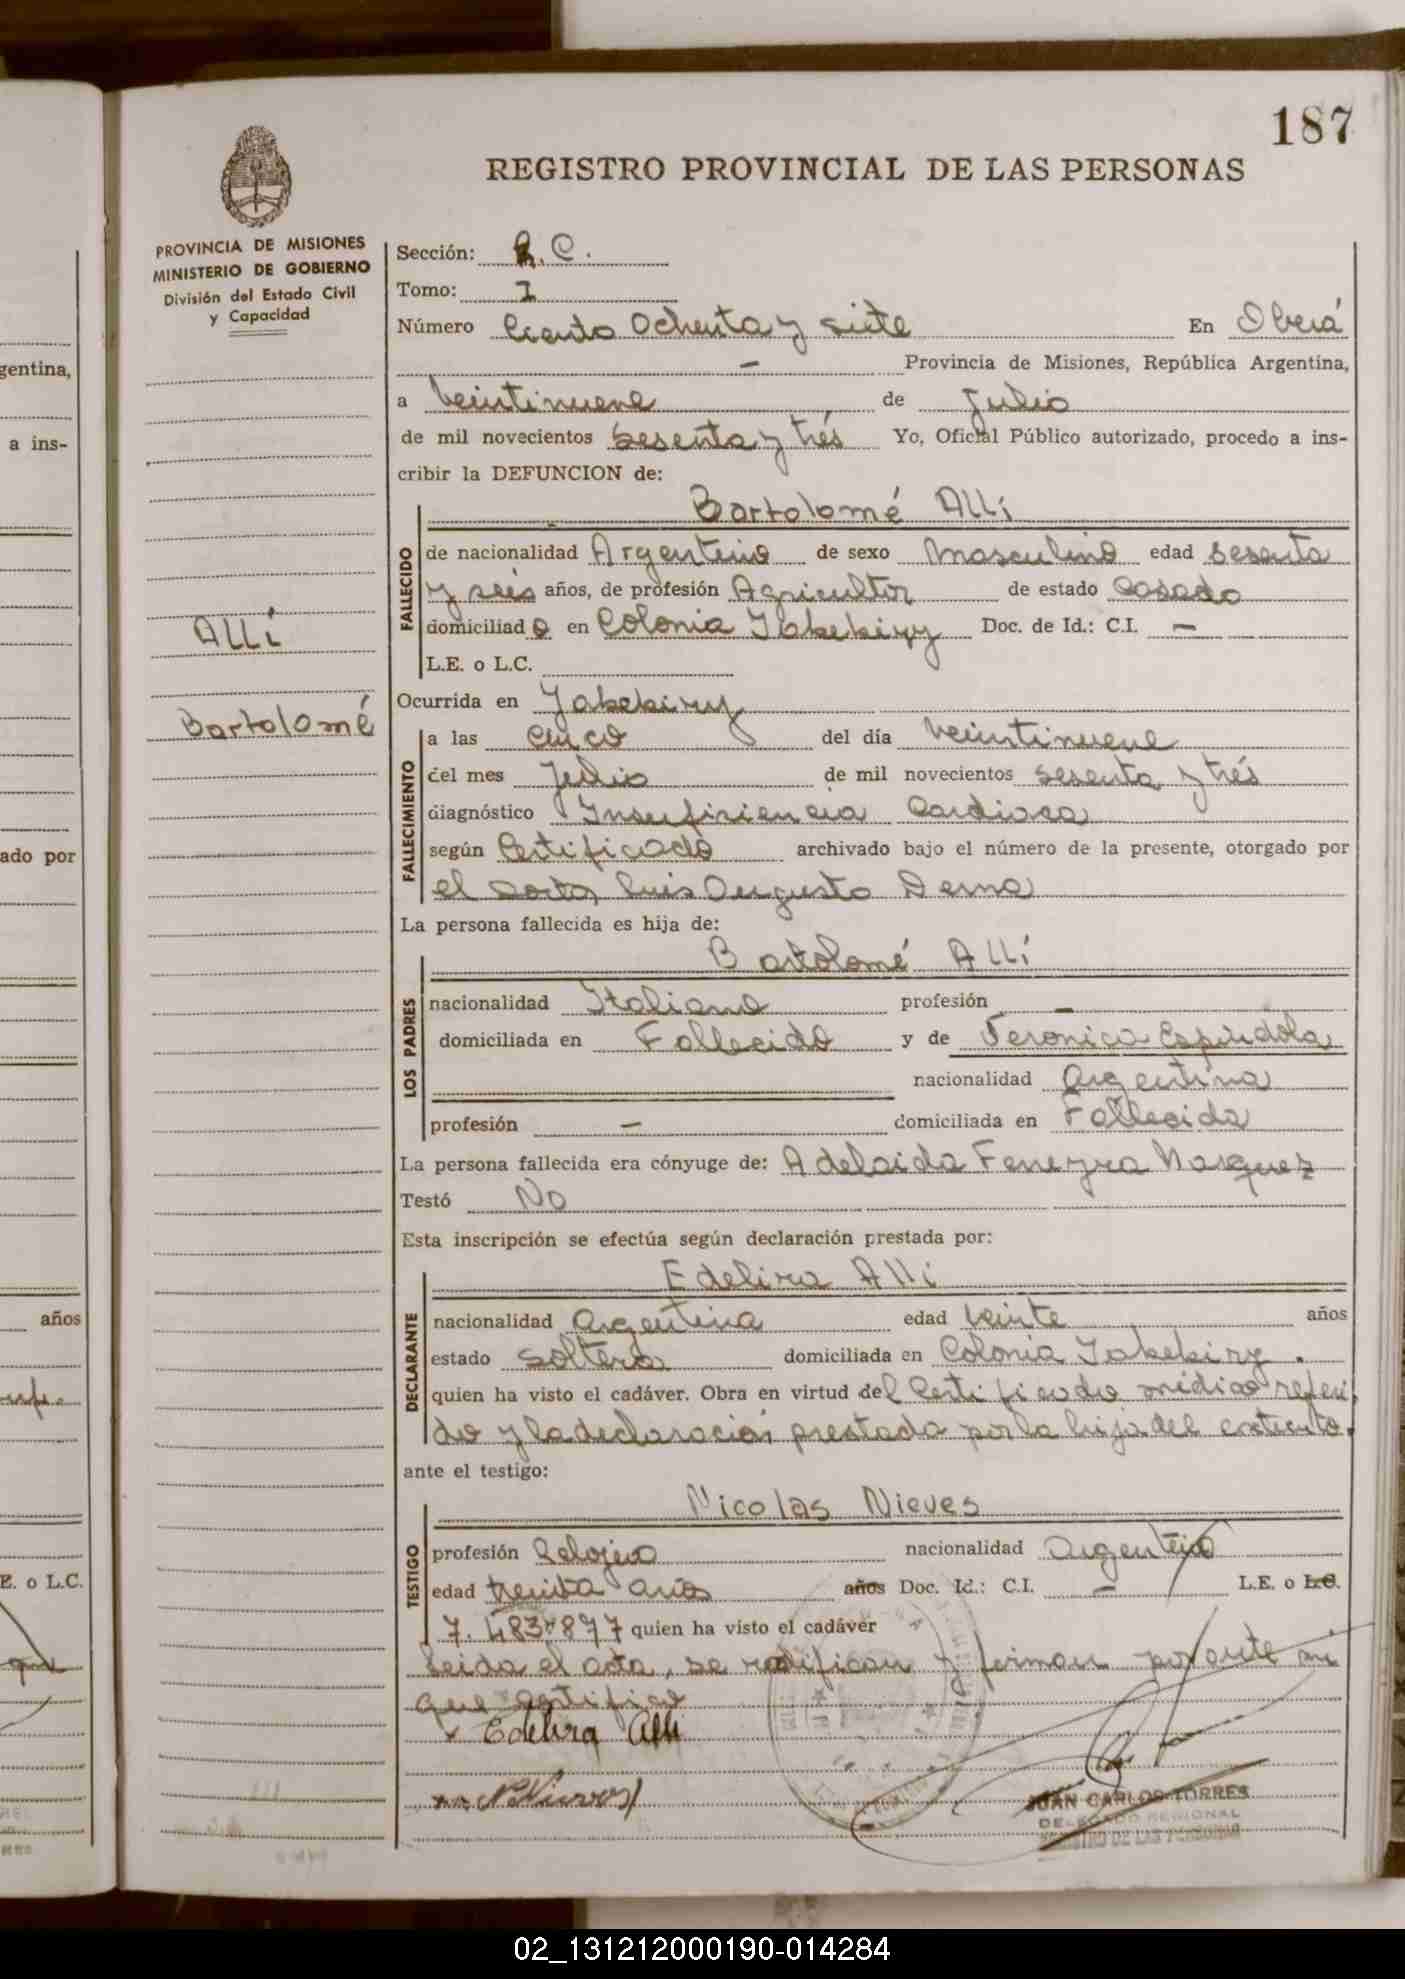 187
REGISTRO PROVINCIAL DE LAS PERSONAS
PROVINCIA DE MISIONES
MINISTERIO DE GOBIERNO
División del Estado Civil
y Capacidad
ALLi
Bartolomé
Sección: R.C.
Tomo: I
Número Ciento Ochenta y siete En Oberá
— Provincia de Misiones, República Argentina,
a Veintinueve de Julio
de mil novecientos sesenta y trés Yo, Oficial Público autorizado, procedo a ins-
cribir la DEFUNCION de:
Bartolomé ALLi
FALLECIDO
de nacionalidad Argentino de sexo masculino edad sesenta
y seis años, de profesión Agricultor de estado Casado
domiciliado en Colonia Yabebiry Doc. de Id.: C.I. —
L.E. o L.C.
Ocurrida en Yabebiry
FALLECIMIENTO
a las cinco del día veintinueve
del mes Julio de mil novecientos sesenta y trés
diagnóstico Insufisiencia Cardiaca
según Certificado archivado bajo el número de la presente, otorgado por
el Luis Augusto Derna
La persona fallecida es hija de:
Bartolomé Alli
LOS PADRES
nacionalidad Italiana profesión —
domiciliada en Fallecido y de Veronica Espindola
nacionalidad Argentina
profesión — domiciliada en Fallecida
La persona fallecida era cónyuge de: Adelaida Fereyra Vasquez
Testó No
Esta inscripción se efectúa según declaración prestada por:
Edelira Alli
DECLARANTE
nacionalidad Argentina edad veinte años
estado soltera domiciliada en Colonia Yabebiry.
quien ha visto el cadáver. Obra en virtud del Certificado médico referi
do y la declaración prestada por la hija del extinto.
ante el testigo:
Nicolas Nieves
TESTIGO
profesión Relojero nacionalidad Argentino
edad treinta años años Doc. Id.: C.I. — L.E. o L.C.
7.483.877 quien ha visto el cadáver
Leida el acta, se ratifican y firman por ante mi
que certifico
Edelira Alli
N Nieves
JUAN CARLOS TORRES
DELEGADO REGIONAL
REGISTRO DE LAS PERSONAS
gentina,
a ins-
ado por
años
E. o L.C.
02_131212000190-014284